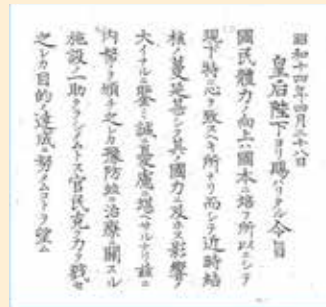 昭和十四年四月二十八日
皇后陛下ヨリ賜ハリタル令旨
國民體力ノ向上ハ國本ニ培フ所以ニシテ
現下特ニ心ヲ致スヘキ所ナリ而シテ近時結
核ノ蔓延甚シク其ノ國力ニ及ホス影響ノ
大イナルニ鑒ミ誠ニ憂慮ニ堪ヘサルナリ茲ニ
内帑ヲ頒チ之レカ豫防竝ニ治療ニ關スル
施設ノ一助タラシムトス官民克ク力ヲ戮セ
之レカ目的達成ニ努メムコトヲ望ム